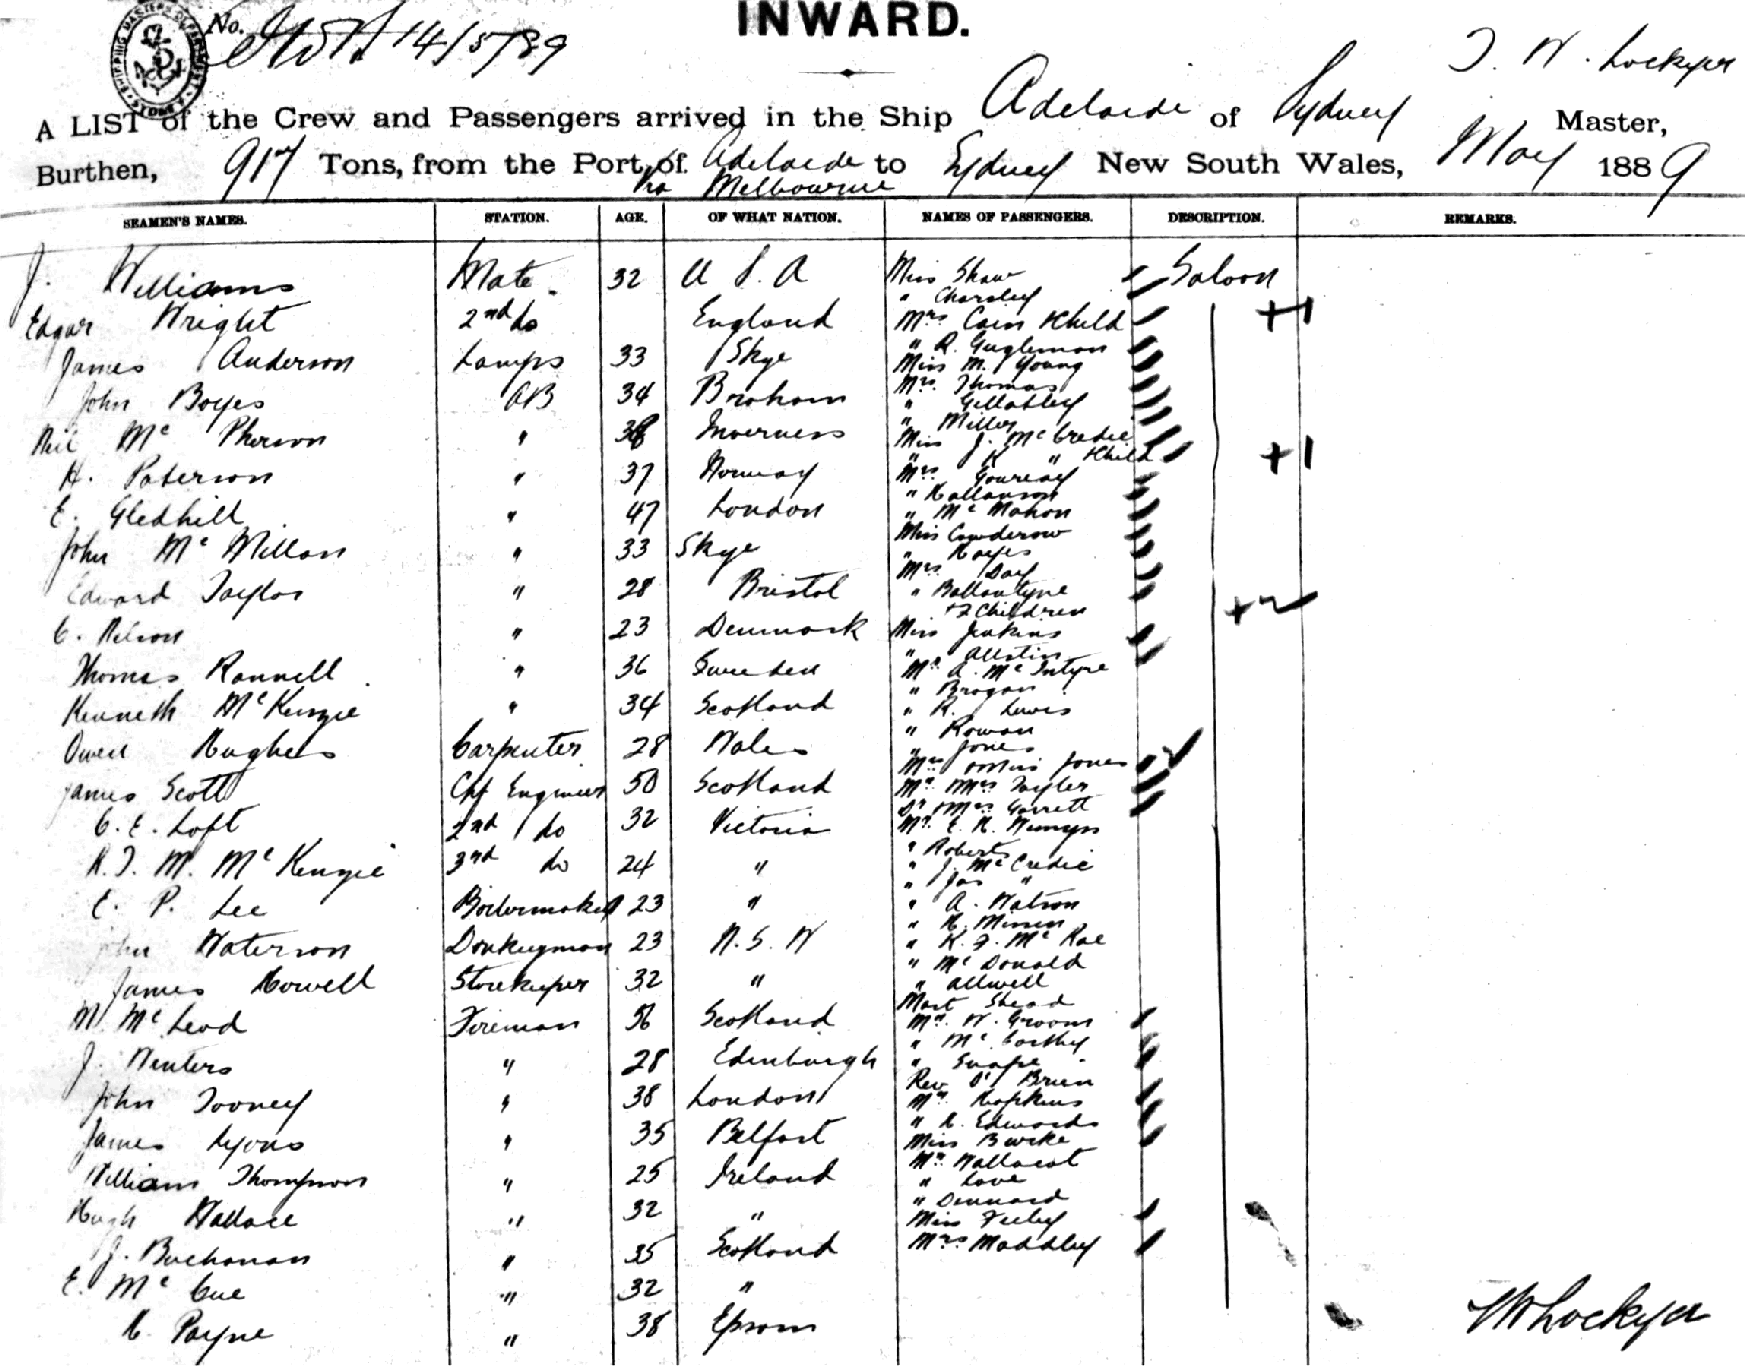 INWARD.
No. 14/5/89
T. W. Lockyer
A LIST of the Crew and Passengers arrived in the Ship Adelaide of Sydney Master,
Burthen, 917 Tons, from the Port of Adelaide to Sydney New South Wales, May 1889
Via Melbourne
SEAMEN'S NAMES. STATION. AGE. OF WHAT NATION. NAMES OF PASSENGERS. DESCRIPTION. REMARKS.
J. Williams Mate. 32 U S A Miss Shaw Saloon
" Chorsley
Edgar Wright 2nd do England Mrs Cain & Child +1
" R.
James Anderson Lamps 33 Skye Miss M. Young
Mrs. Thomas
John Boyes AB 34
" Miller
Neil Mc Pherson " Inverness Miss J. McCredie
" K " & Child +1
H. Paterson " 37 Norway Mrs
E. Gledhill " 47 London " Mc Mahon
Miss
John Mc Millan " 33 Skye " Hayes
Mrs Day
Edward Taylor " 28 Bristol " Ballantyne
+ 2 Children +2
C. Nelson " 23 Denmark Miss Jenkins
" Austin
Thomas Rannell " 36 Sweeden Mr. A. McIntyre
" Brogan
Kenneth McKenzie " 34 Scotland " R. Lewis
" Rowan
Owen Hughes Carpenter 28 Wales " Jones
Mrs & Miss Jones
James Scott Chf Engineer 50 Scotland Mr & Mrs Tayler
Dr & Mrs Garrett
C. E. Loft 2nd do 32 Victoria Mr. E. R.
" Roberts
R. T. M. McKenzie 3rd do 24 " " J. McCredie
" Jas "
E. P. Lee Boilermaker 23 " " A. Watson
" H.
John Waterson Donkeyman 23 N. S. W " K. F. McRae
" McDonald
James Howell Storekeeper 32 " " Allwell
Mast Shead
M. McLeod Fireman 56 Scotland Mr. W. Groom
" McCarthy
J. Winters " 28 Edinburgh " Snape
Rev O'Brien
John Tooney " 38 London Mr. Hopkins
" R. Edwards
James Lyons " 35 Belfast Miss Burke
Mr. Wallacot
William Thompson " 25 Ireland " Love
" Dennard
Hugh Wallace " 32 " Miss Feeley
J. Buchanan " 35 Scotland Mrs. Maddley
E. McCue " 32 "
H. Payne " 38 Epsom
TWLockyer